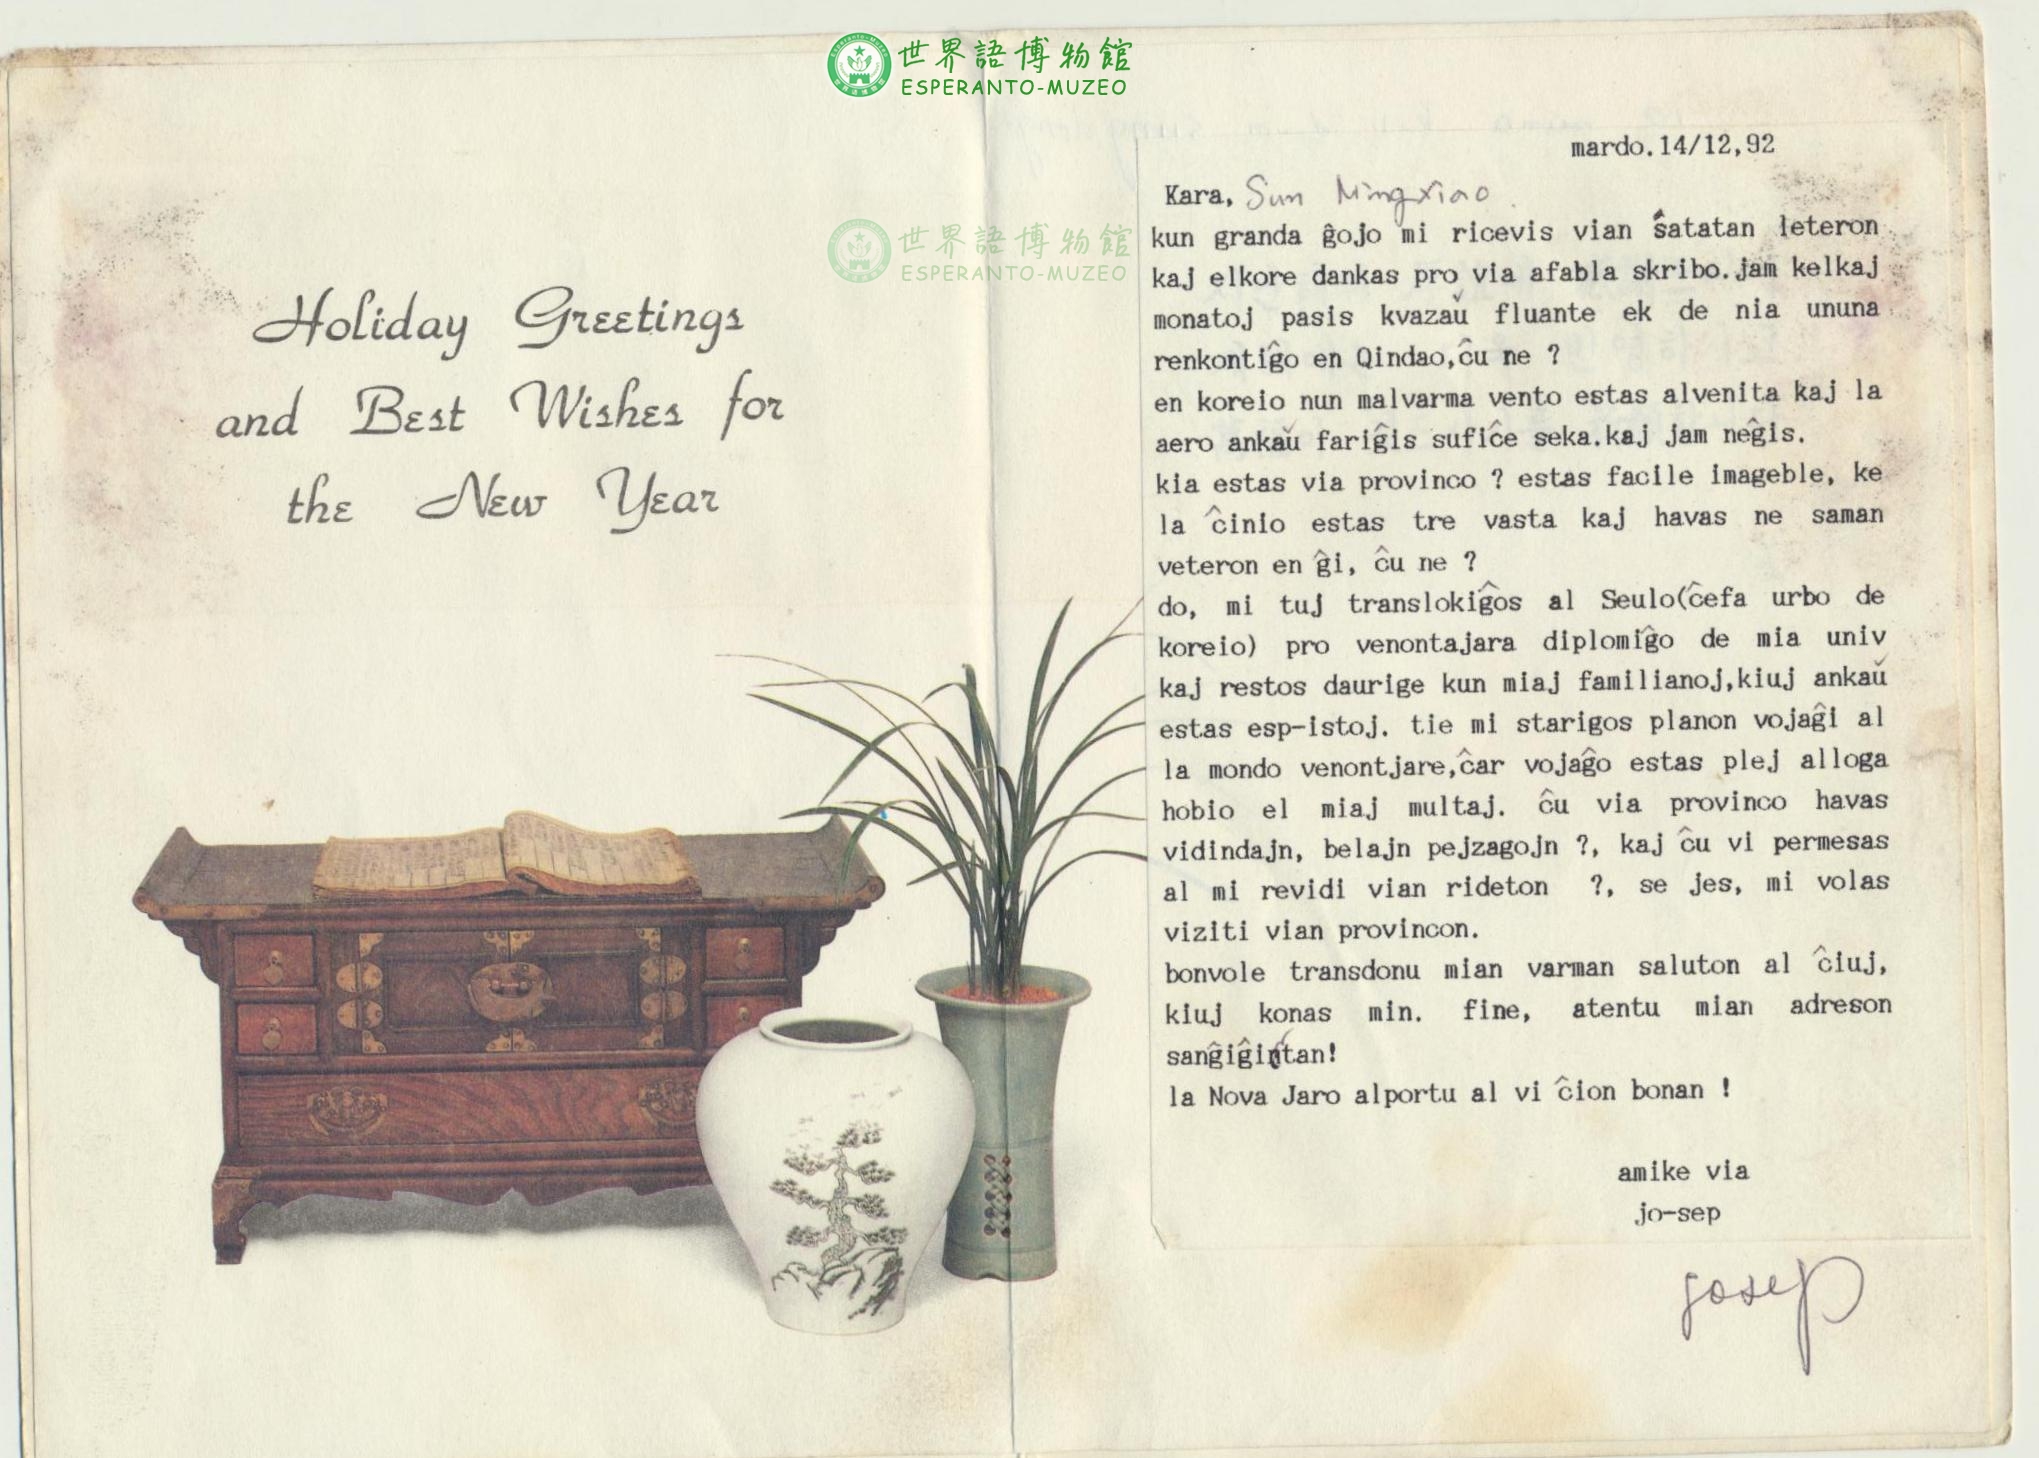 世界語博物館
ESPERANTO-MUZEO
世界語博物館
ESPERANTO-MUZEO
Holiday Greetings
and Best Wishes for
the New Year
mardo.14/12,92
Kara, Sun Mingxiao
kun granda ĝojo mi ricevis vian ŝatatan leteron
kaj elkore dankas pro via afabla skribo.jam kelkaj
monatoj pasis kvazaŭ fluante ek de nia ununa
renkontiĝo en Qindao,ĉu ne ?
en koreio nun malvarma vento estas alvenita kaj la
aero ankaŭ fariĝis sufiĉe seka.kaj jam neĝis.
kia estas via provinco ? estas facile imageble, ke
la ĉinio estas tre vasta kaj havas ne saman
veteron en ĝi, ĉu ne ?
do, mi tuj translokiĝos al Seulo(ĉefa urbo de
koreio) pro venontajara diplomiĝo de mia univ
kaj restos daurige kun miaj familianoj,kiuj ankaŭ
estas esp-istoj. tie mi starigos planon vojaĝi al
la mondo venontjare,ĉar vojaĝo estas plej alloga
hobio el miaj multaj. ĉu via provinco havas
vidindajn, belajn pejzagojn ?, kaj ĉu vi permesas
al mi revidi vian rideton ?, se jes, mi volas
viziti vian provincon.
bonvole transdonu mian varman saluton al ĉiuj,
kiuj konas min. fine, atentu mian adreson
sanĝiĝintan!
la Nova Jaro alportu al vi ĉion bonan !
amike via
jo-sep
josep